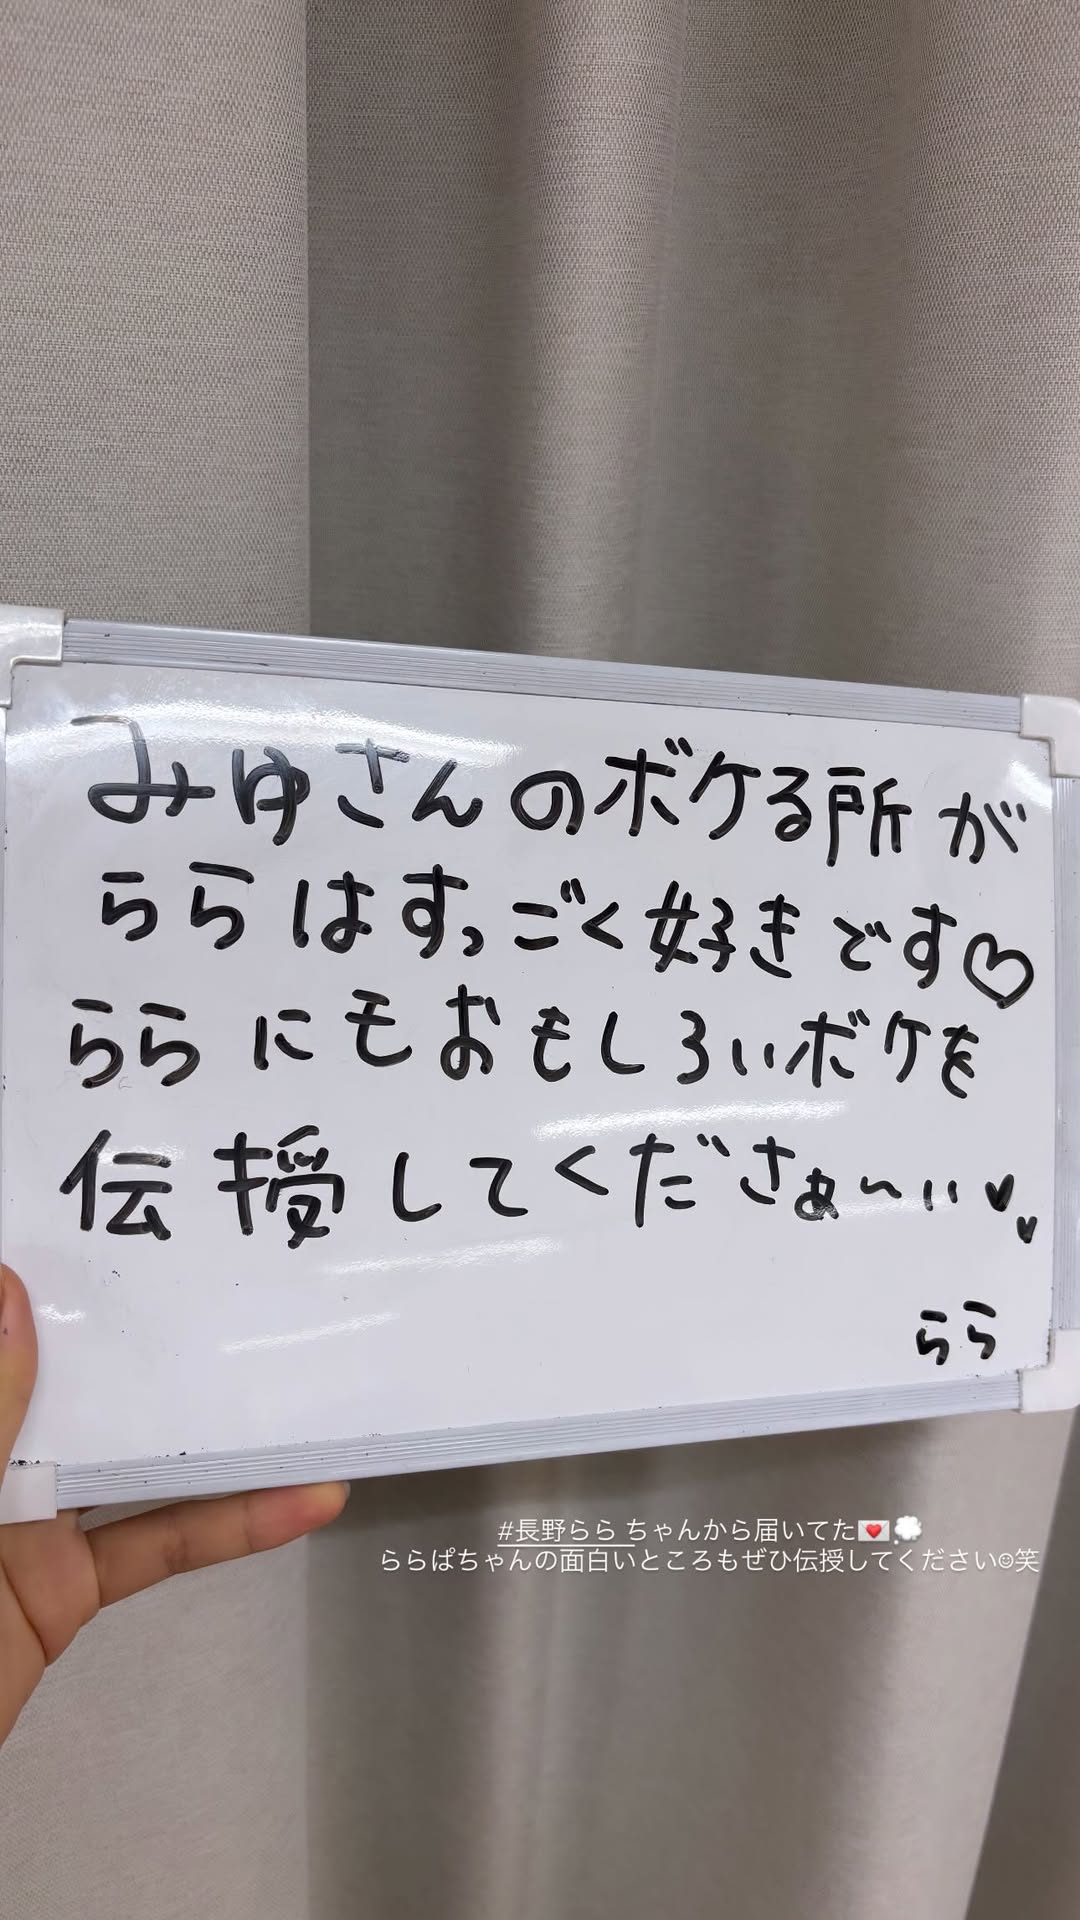 みゆさんのボケる所が
ららはすっごく好きです♡
ららにモおもしろいボケを
伝授してくださぁ〜い♥♥
らら
#長野らら ちゃんから届いてた💌💭
ららぱちゃんの面白いところもぜひ伝授してください☺笑